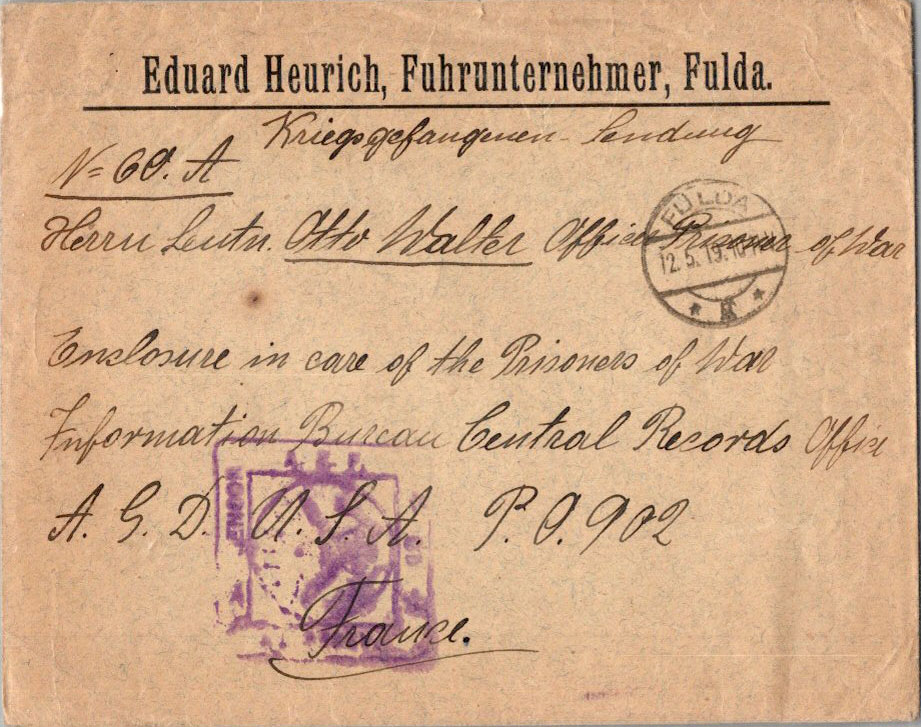 Eduard Heurich, Fuhrunternehmer, Fulda.
Kriegsgefangenen-Sendung
N= 60. A
Herrn Leutn. Otto Walter Officer Prisoner of War
FULDA
12.5.19.
* K *
Enclosure in care of the Prisoners of War
Information Bureau Central Records Office
A.E.F.
A. G. D. U. S. A. P. O. 902
France.